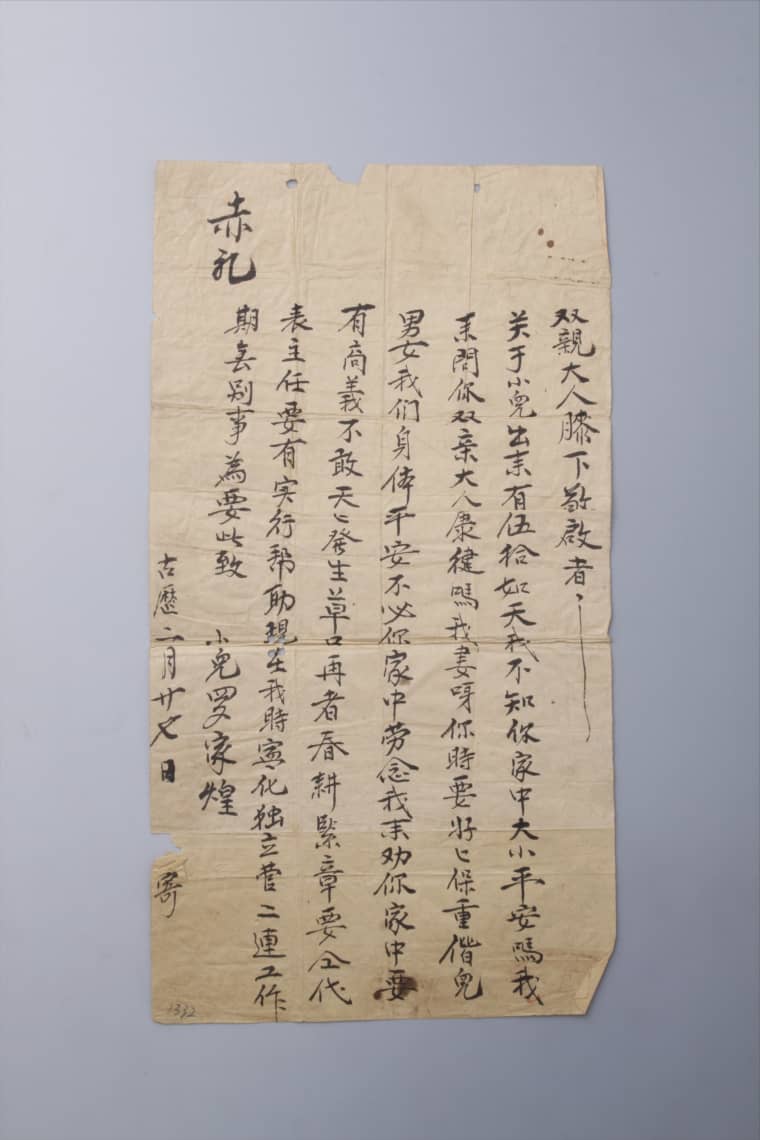 双親大人膝下敬啟者
关于小兒出来有伍拾如天我不知你家中大小平安嗎我
来問你双亲大人康健嗎我妻呀你時要好〻保重偕兒
男女我们身体平安不必你家中劳念我来劝你家中要
有商義不敢天〻發生草口再者春耕緊章要仝代
表主任要有实行帮助現在我時寧化独立营二連工作
期無别事為要此致
赤礼
小兒罗家煌
古歷二月廿七日 寄
1332